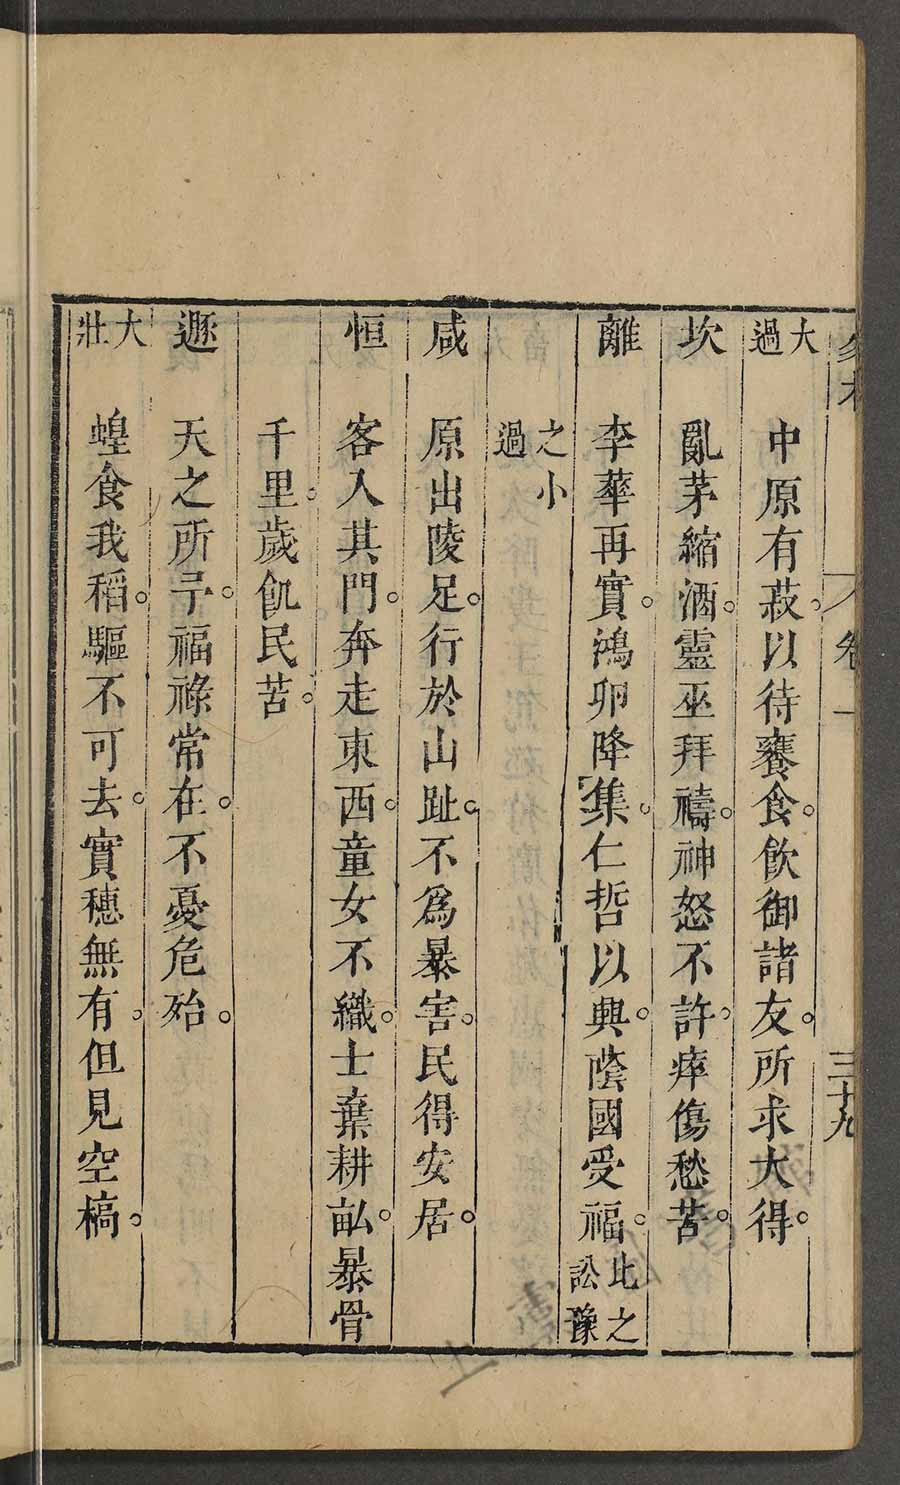 卷一 三十九
大過 中原有菽。以待饔食。飲御諸友。所求大得。
坎 亂茅縮酒。靈巫拜禱。神怒不許。瘁傷愁苦。
離 李華再實。鴻卵降集。仁哲以興。蔭國受福。比之訟豫
之小過
咸 原出陵足。行於山趾。不爲暴害。民得安居。
恒 客入其門。奔走東西。童女不織。士棄耕畝。暴骨
千里。歲飢民苦。
遯 天之所予。福祿常在。不憂危殆。
大壯 蝗食我稻。驅不可去。實穗無有。但見空槁。